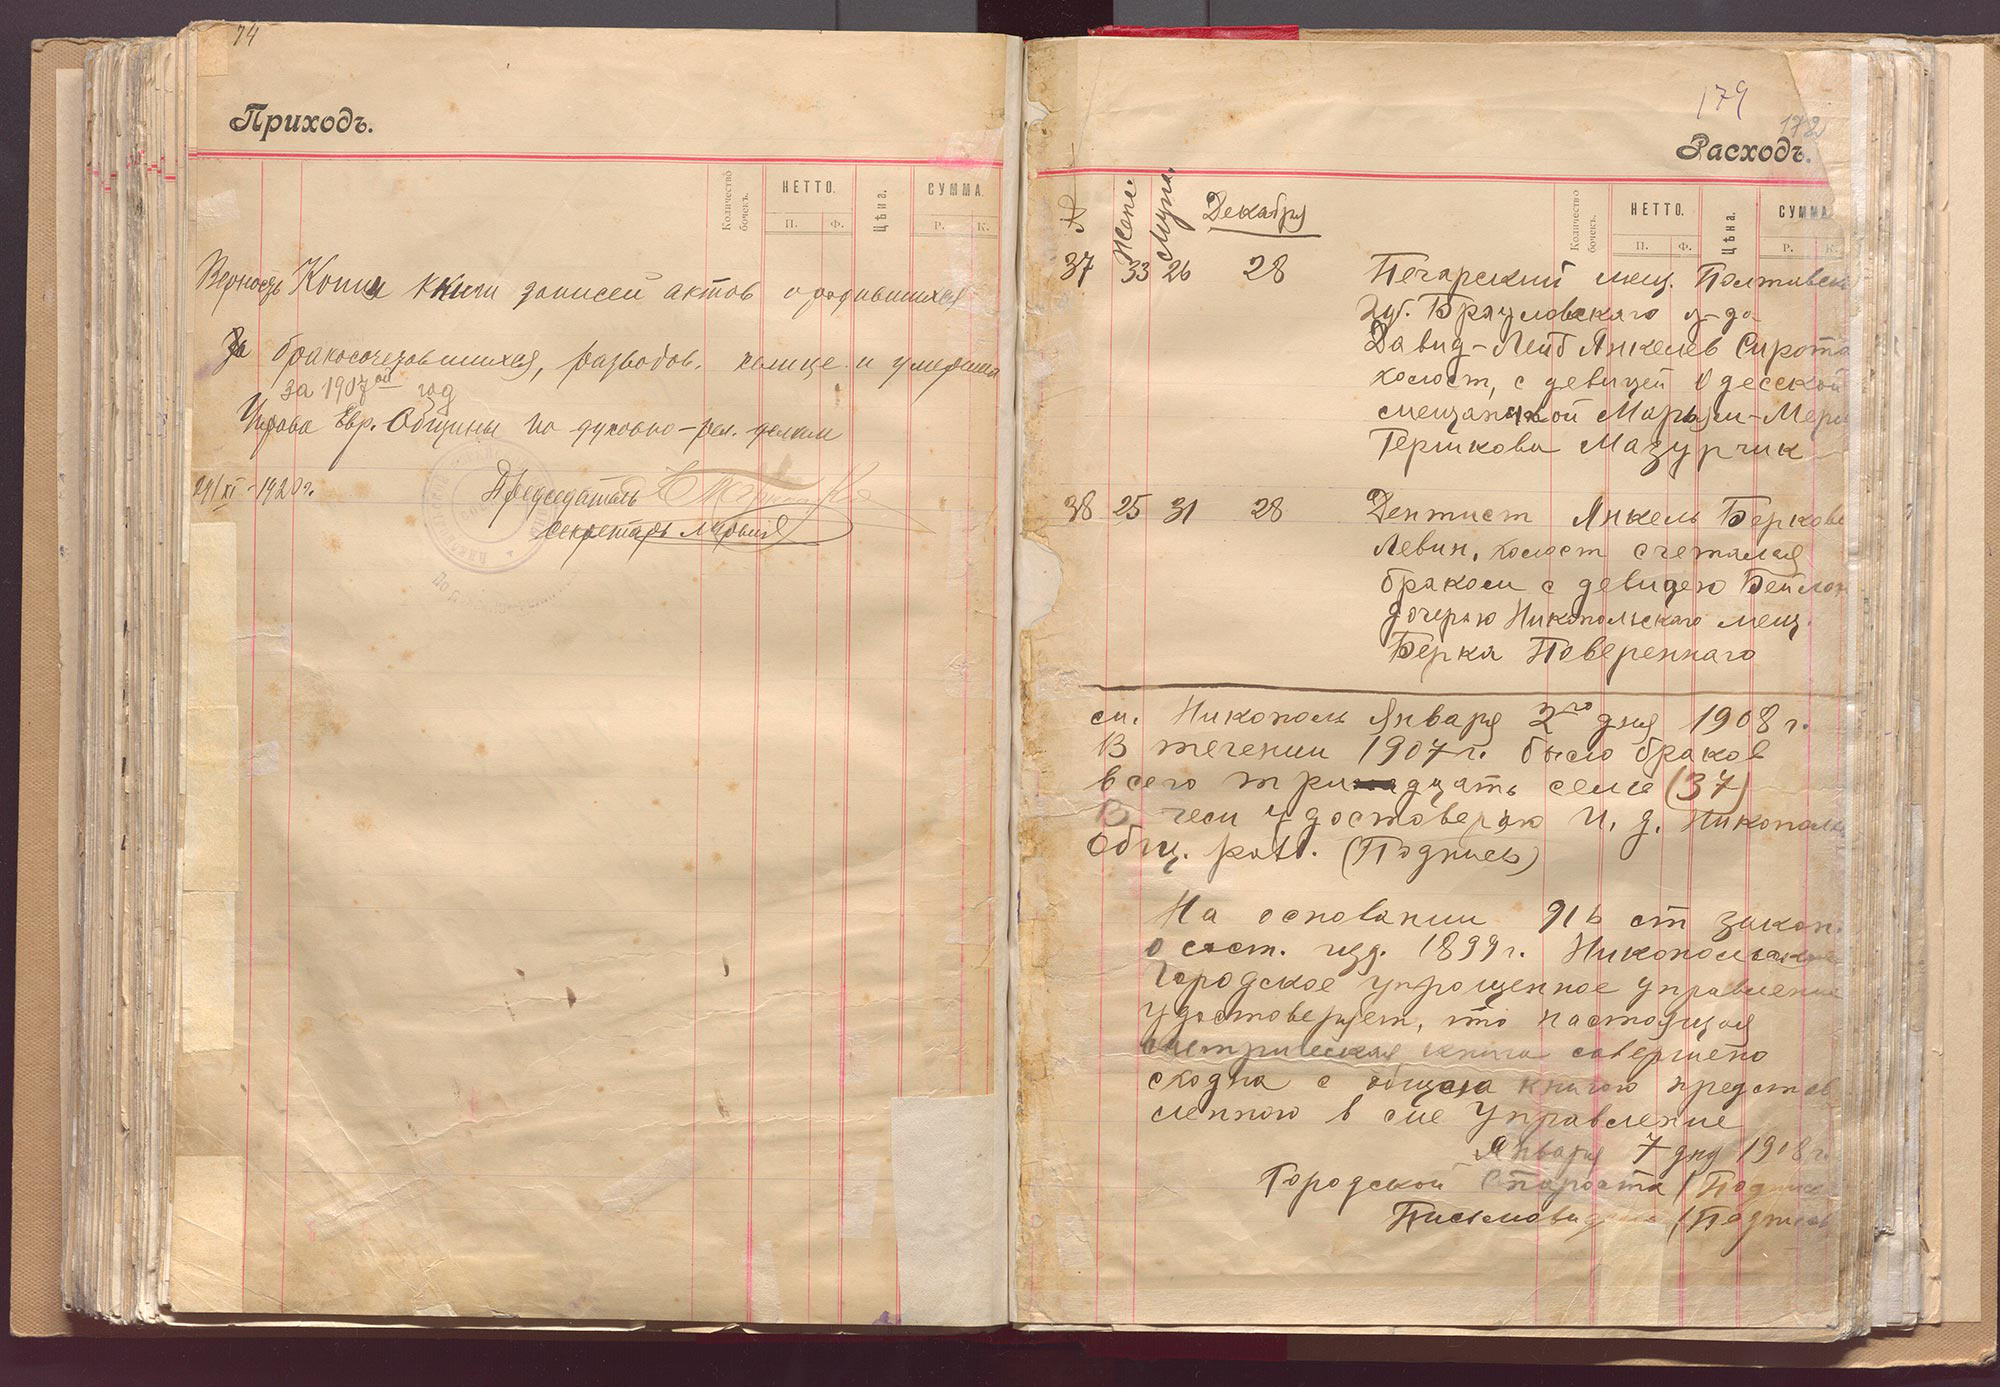 74
Приходъ.
Количество бочекъ.
НЕТТО.
Цѣна.
СУММА.
П. Ф. Р. К.
Верность Копии книги записей актов о родившихся
За бракосочетавшихся, разводов. и умерших
за 1907ой год
Управа Евр. Общины по духовно-рел. делам
1920 г.
Председатель
Секретарь
179
172
Расходъ.
Количество бочекъ.
НЕТТО.
Цѣна.
СУММА
П. Ф. Р. К.
№ Жене. Мужа. Декабря
37 33 26 28 Печарский мещ.
Губ. Брацловскаго у-да
Давид-Лейб Янкелев Сирота
холост, с девицей Одесской
мещанкой Марьям-Мери
Гершкова Мазурчик
38 25 31 28 Дентист Янкель Беркове
Левин, холост счетался
браком с девицею Бейлой
дочерью Никопольскаго мещ.
Берка Повереннаго
м. Никополь Января 2го дня 1908 г.
В течении 1907 г. было браков
всего тридцать семь (37)
В чем удостоверяю И. д. Никополь
Общ. рав. (Подпись)
На основании 916 ст закон.
о сост. изд. 1899 г. Никопольское
Городское упрощенное управление
удостоверяет, что настоящая
метрическая книга совершено
сходна с книгою представ
ленною в сие Управление
Января 7 дня 1908 г.
Городской Староста (Подпис
Письмоводитель (Подпись